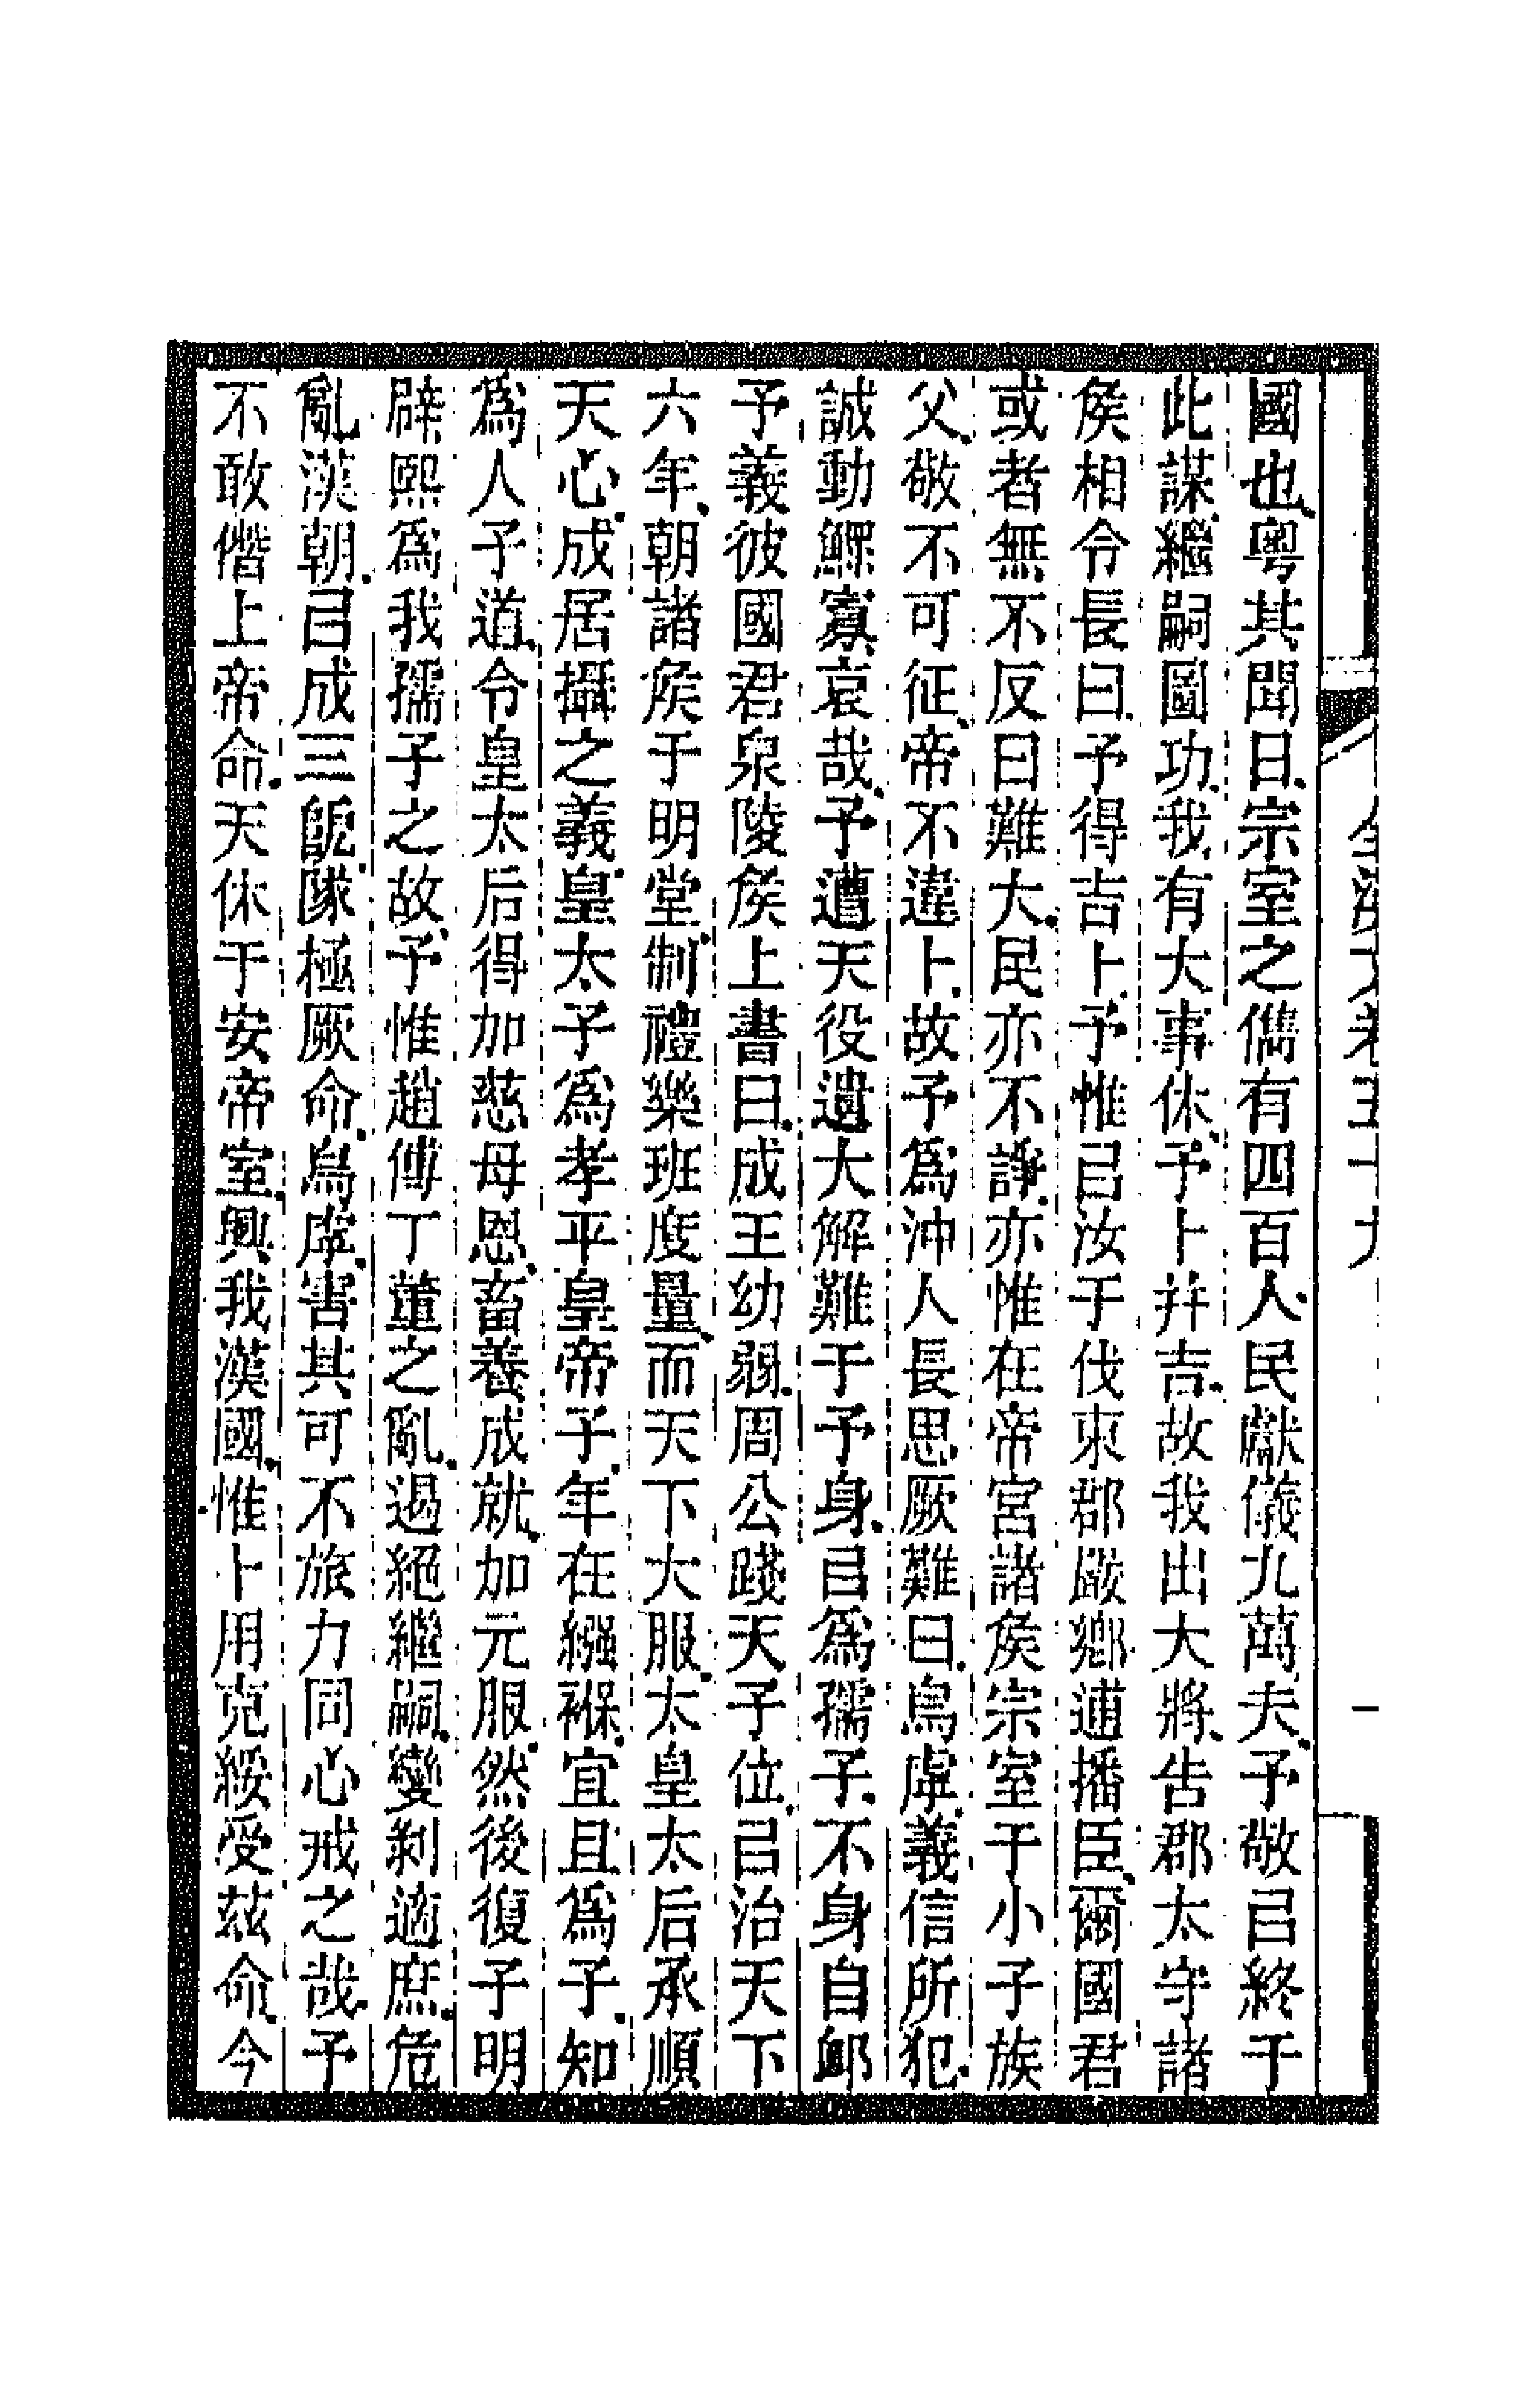 國也粤其聞日宗室之儁有四百人民獻儀九萬夫予敬㠯終于
此謀繼嗣圖功我有大事休予卜并吉故我出大將告郡太守諸
矦相令長曰予得吉卜予惟㠯汝于伐東郡嚴鄉逋播臣爾國君
或者無不反曰難大民亦不諍亦惟在帝宮諸矦宗室于小子族
父敬不可征帝不違卜故予爲沖人長思厥難曰烏虖義信所犯
誠動鰥寡哀哉予遭天役遺大解難于予身㠯爲孺子不身自卹
予義彼國君泉陵矦上書曰成王幼弱周公踐天子位㠯治天下
六年朝諸矦于明堂制禮樂班度量而天下大服太皇太后承順
天心成居攝之義皇太子爲孝平皇帝子年在繈褓宜且爲子知
爲人子道令皇太后得加慈母恩畜養成就加元服然後復子明
辟熙爲我孺子之故予惟趙傅丁董之亂遏絕繼嗣變剝適庶危
亂漢朝㠯成三䣛隊極厥命烏虖害其可不旅力同心戒之哉予
不敢僭上帝命天休于安帝室興我漢國惟卜用克綏受茲命今